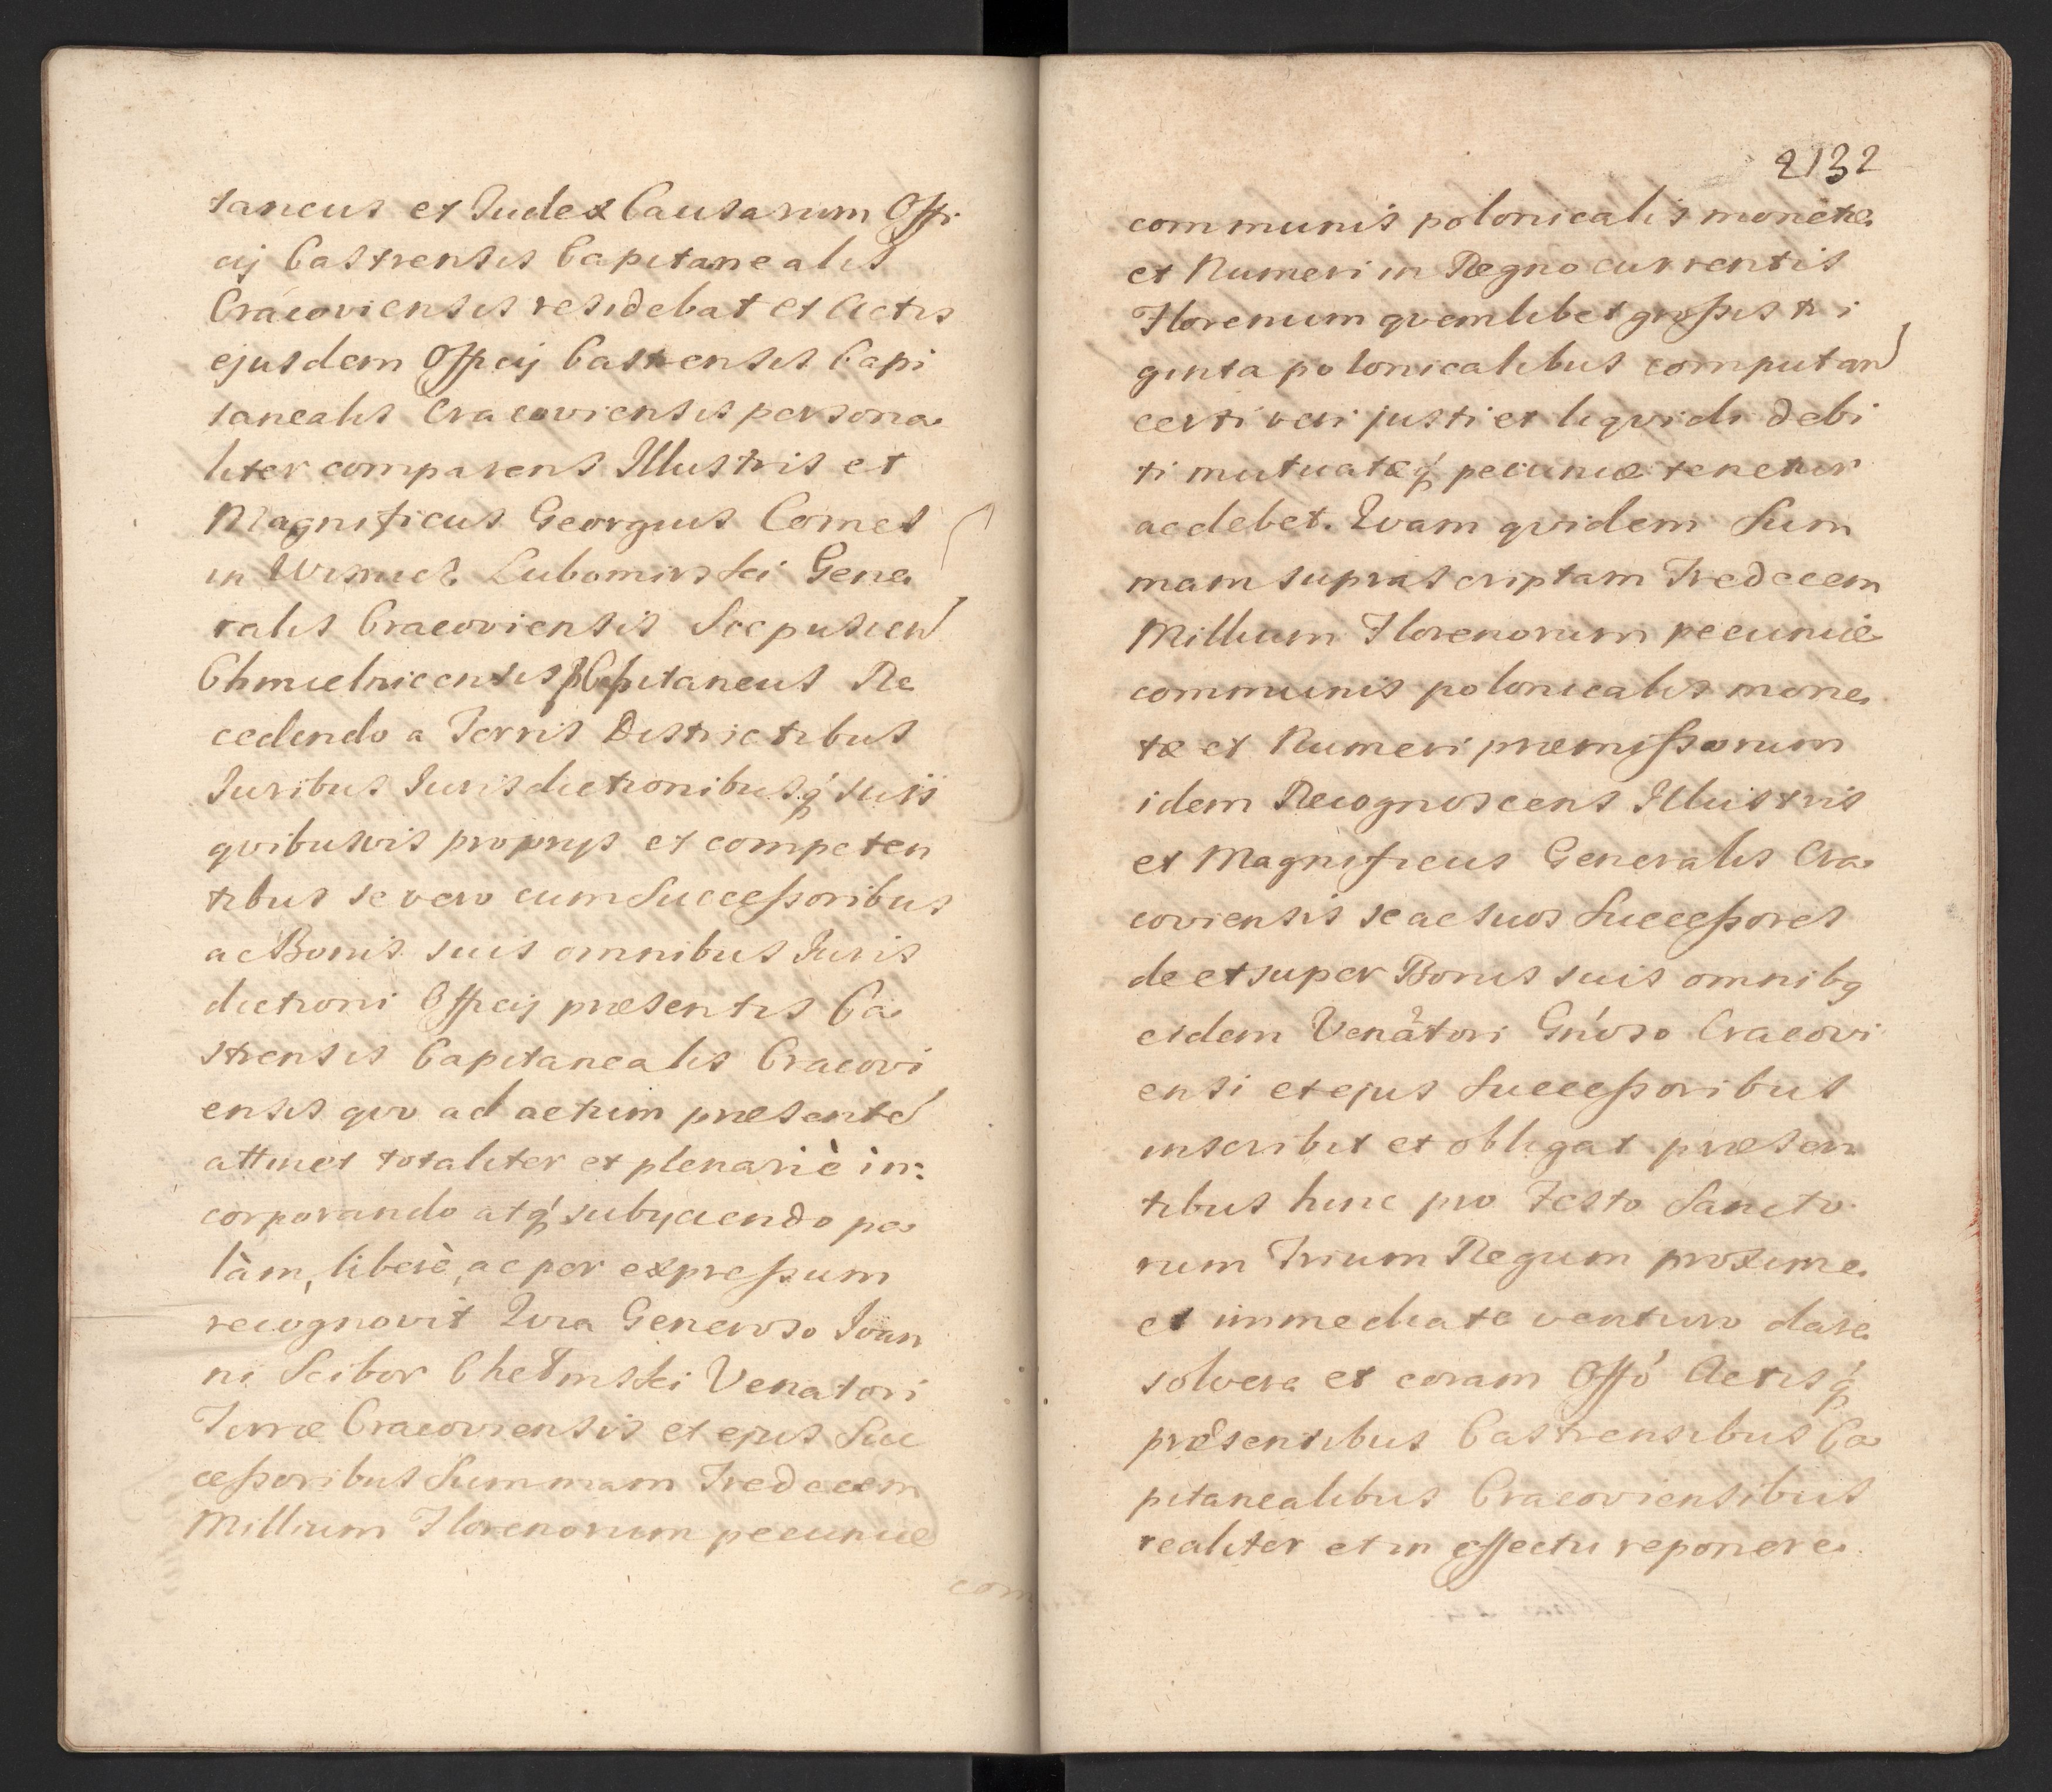 taneus et Judex Causarum Offi
cij Castrensis Capitanealis
Cracoviensis residebat et Actis
ejusdem Officij Castrensis Capi
tanealis Cracoviensis persona
liter comparens Illustris et
Magnificus Georgius Comes
in Wisnicz Lubomirski Gene
ralis Cracoviensis Scepusien
Chmielnicensis Capitaneus Re
cedendo a Terris Districtibus
Juribus Jurisdictionibusq́ suis
qvibusvis proprijs et competen
tibus se vero cum Successoribus
ac Bonis suis omnibus Juris
dictioni Officij præsentis Ca
strensis Capitanealis Cracovi
ensis qvo ad actum præsente
attinet totaliter et plenariè in:
corporando atq́ subijciendo pa
làm, liberè, ac per expressum
recognovit Qvia Generoso Joan
ni Scibor Chełmski Venatori
Terræ Cracoviensis et ejus Suc
cessoribus Summam Tredecem
Millium Florenorum pecuniæ
com
2132
communis polonicalis monetæ
et Numeri in Regno currentis
Florenum qvemlibet grossis tri
ginta polonicalibus computan
certi veri justi et liqvidi debi
ti mutuatæq́ pecuniæ tenetur
ac debet. Qvam qvidem Sum
mam suprascriptam Tredecem
Millium Florenorum pecuniæ
communis polonicalis mone
tæ et Numeri præmissorum
idem Recognoscens Illustris
et Magnificus Generalis Cra
coviensis se ac suos Successores
de et super Bonis suis omnibq
eidem Venatori Gńoso Cracovi
ensi et ejus Successoribus
inscribit et obligat præsen
tibus hinc pro Festo Sancto
rum Trium Regum proxime
et immediate venturo dare
solvere et coram Offó Actisq́
præsentibus Castrensibus Ca
pitanealibus Cracoviensibus
realiter et in effectu reponere